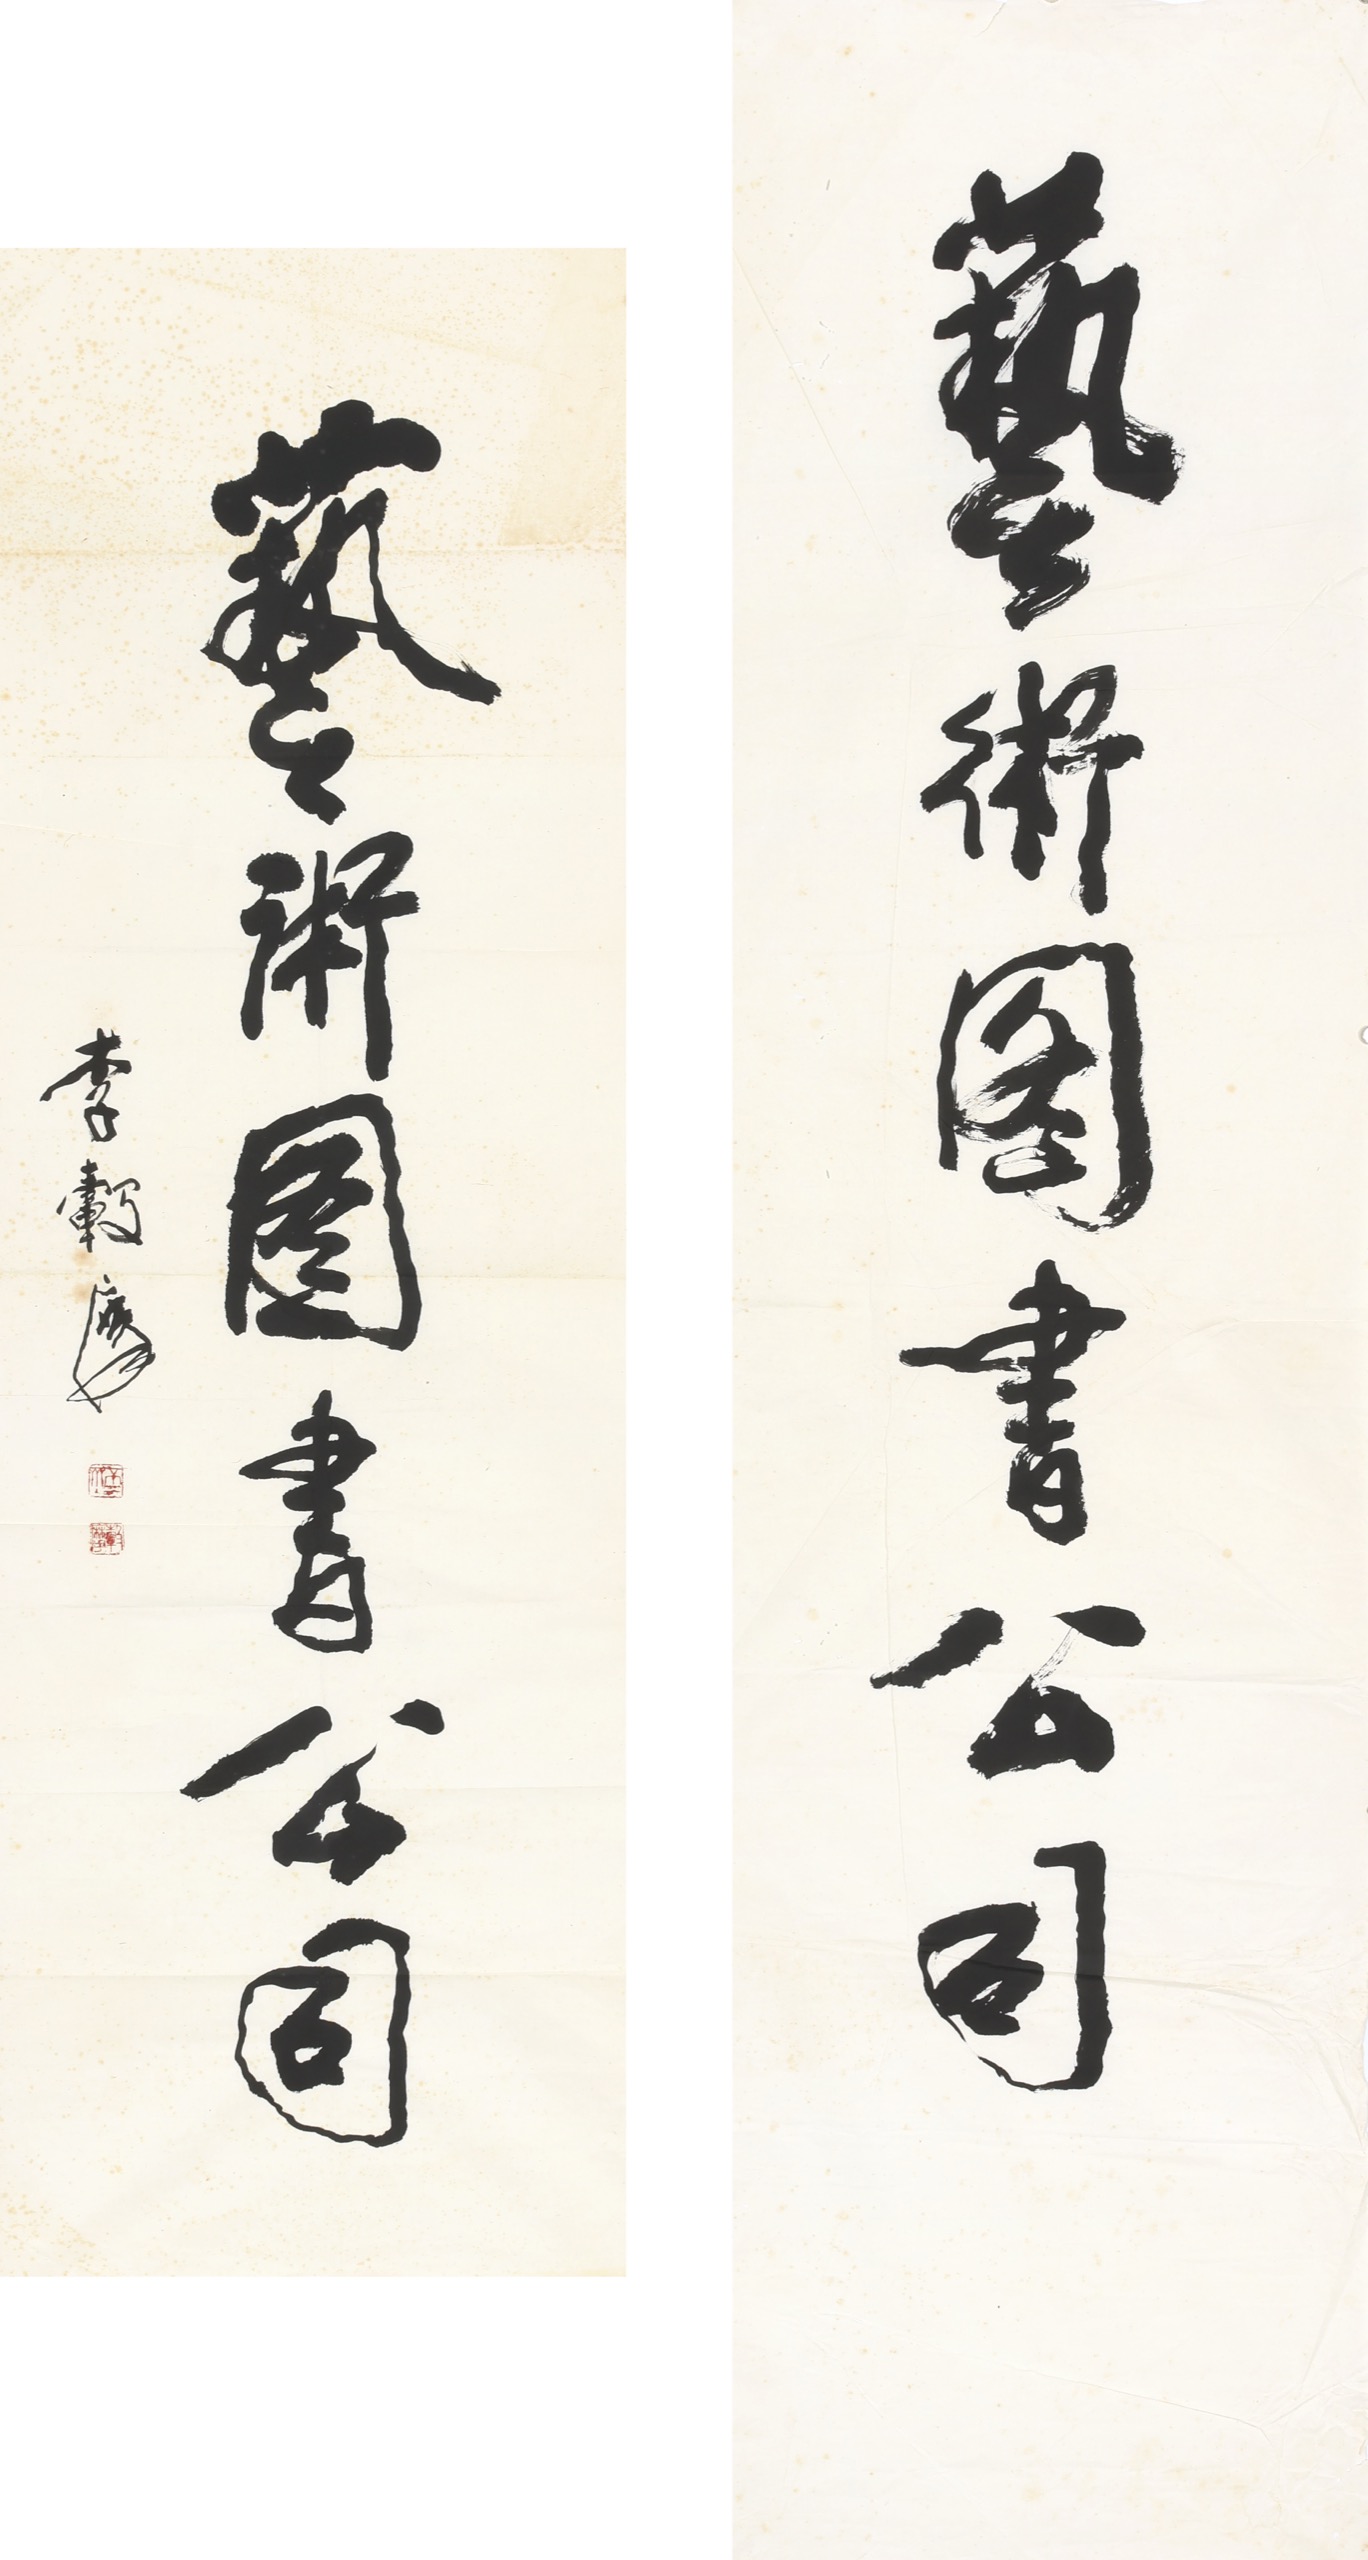 藝術圖書公司
藝術圖書公司
李轂摩